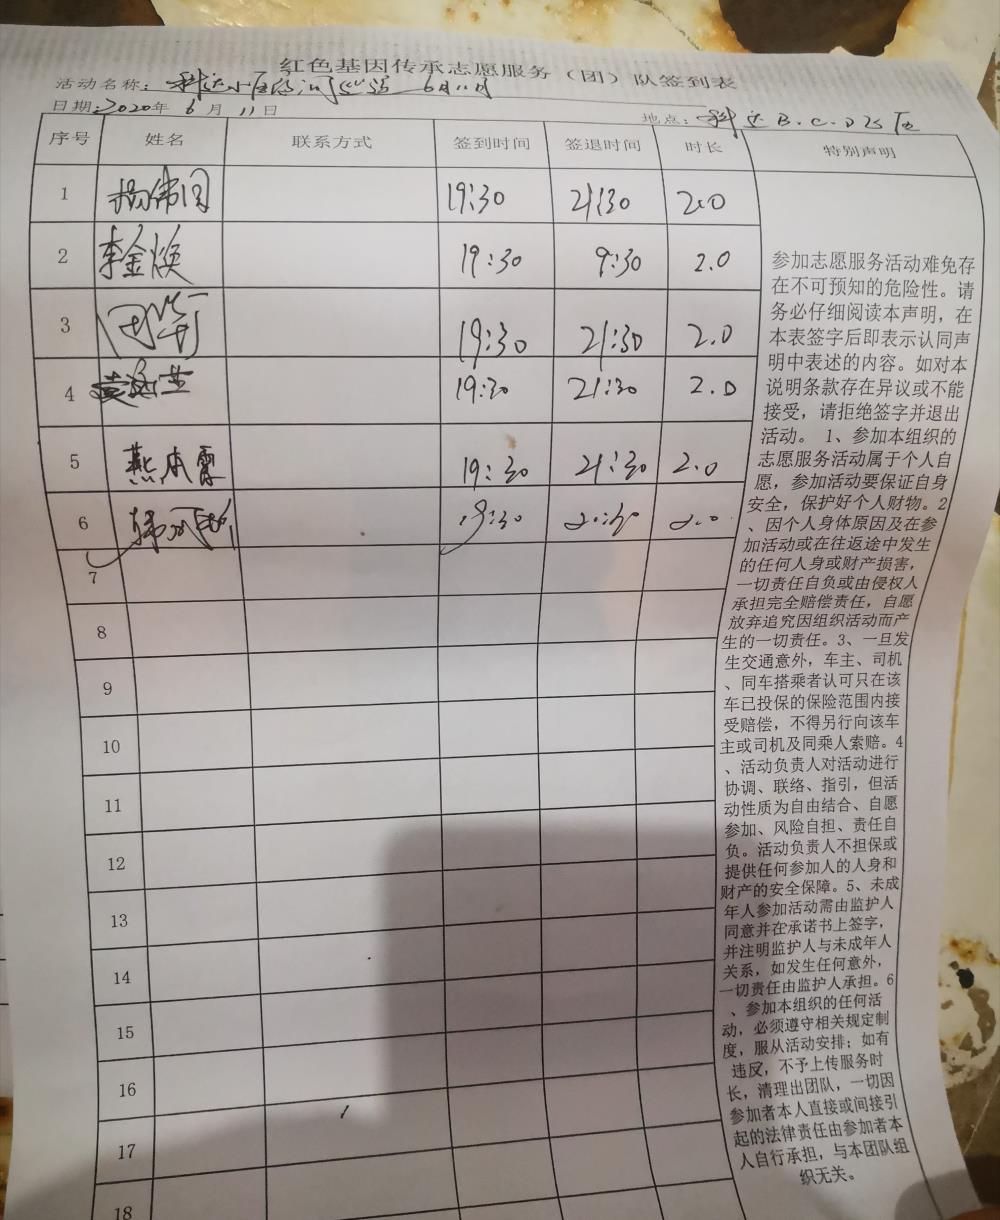 红色基因传承志愿服务（团）队签到表
活动名称: 6月11日
日期: 2020年 6 月 11 日
地点: 科达 B.C.D 区
序号 姓名 联系方式 签到时间 签退时间 时长 特别声明
1 杨伟国 19:30 21:30 2.0
2 李金焕 19:30 9:30 2.0
3 19:30 21:30 2.0
4 19:30 21:30 2.0
5 燕 19:30 21:30 2.0
6 19:30 2.0
7
8
9
10
11
12
13
14
15
16
17
18
参加志愿服务活动难免存
在不可预知的危险性。请
务必仔细阅读本声明，在
本表签字后即表示认同声
明中表述的内容。如对本
说明条款存在异议或不能
接受，请拒绝签字并退出
活动。 1、参加本组织的
志愿服务活动属于个人自
愿，参加活动要保证自身
安全，保护好个人财物。2
、因个人身体原因及在参
加活动或在往返途中发生
的任何人身或财产损害，
一切责任自负或由侵权人
承担完全赔偿责任，自愿
放弃追究因组织活动而产
生的一切责任。3、一旦发
生交通意外，车主、司机
、同车搭乘者认可只在该
车已投保的保险范围内接
受赔偿，不得另行向该车
主或司机及同乘人索赔。4
、活动负责人对活动进行
协调、联络、指引，但活
动性质为自由结合、自愿
参加、风险自担、责任自
负。活动负责人不担保或
提供任何参加人的人身和
财产的安全保障。5、未成
年人参加活动需由监护人
同意并在承诺书上签字，
并注明监护人与未成年人
关系，如发生任何意外，
一切责任由监护人承担。6
、参加本组织的任何活
动，必须遵守相关规定制
度，服从活动安排；如有
违反，不予上传服务时
长，清理出团队，一切因
参加者本人直接或间接引
起的法律责任由参加者本
人自行承担，与本团队组
织无关。